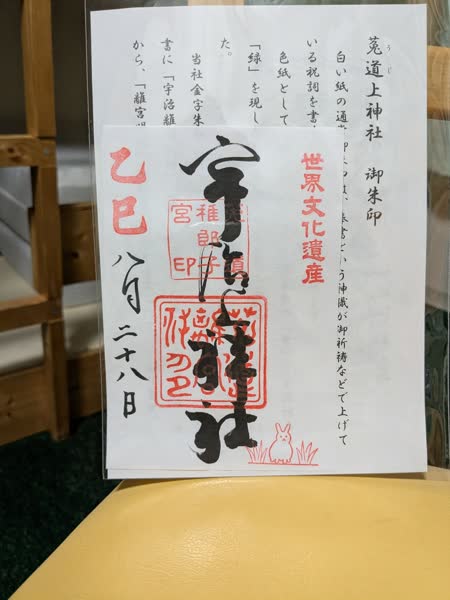 うじ
菟道上神社 御朱印
白い紙の通常御朱印は、奉書という神職が御祈祷などで上げて
いる祝詞を書
色紙として
「緑」を現し
た。
当社金字朱
書に「宇治離
から、「離宮明
世界文化遺産
宇治上神社
菟道
稚郎子
宮印
乙巳
八月二十八日